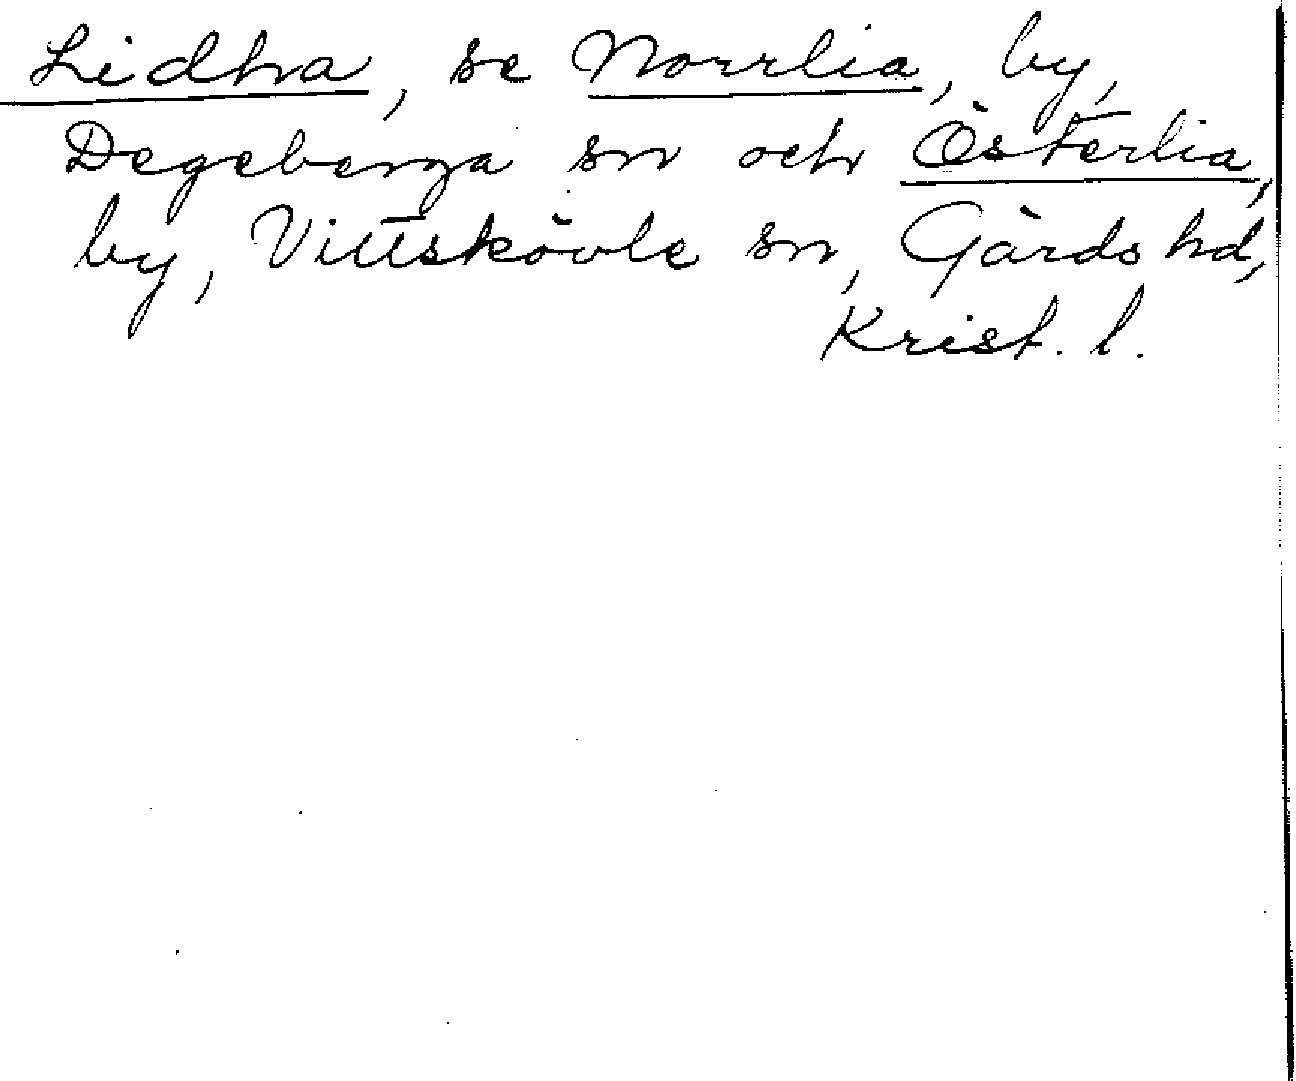 Lidha, se Norrlia, by,
Degeberga sn och Österlia,
by, Vittskövle sn, Gärds hd,
Krist. l.